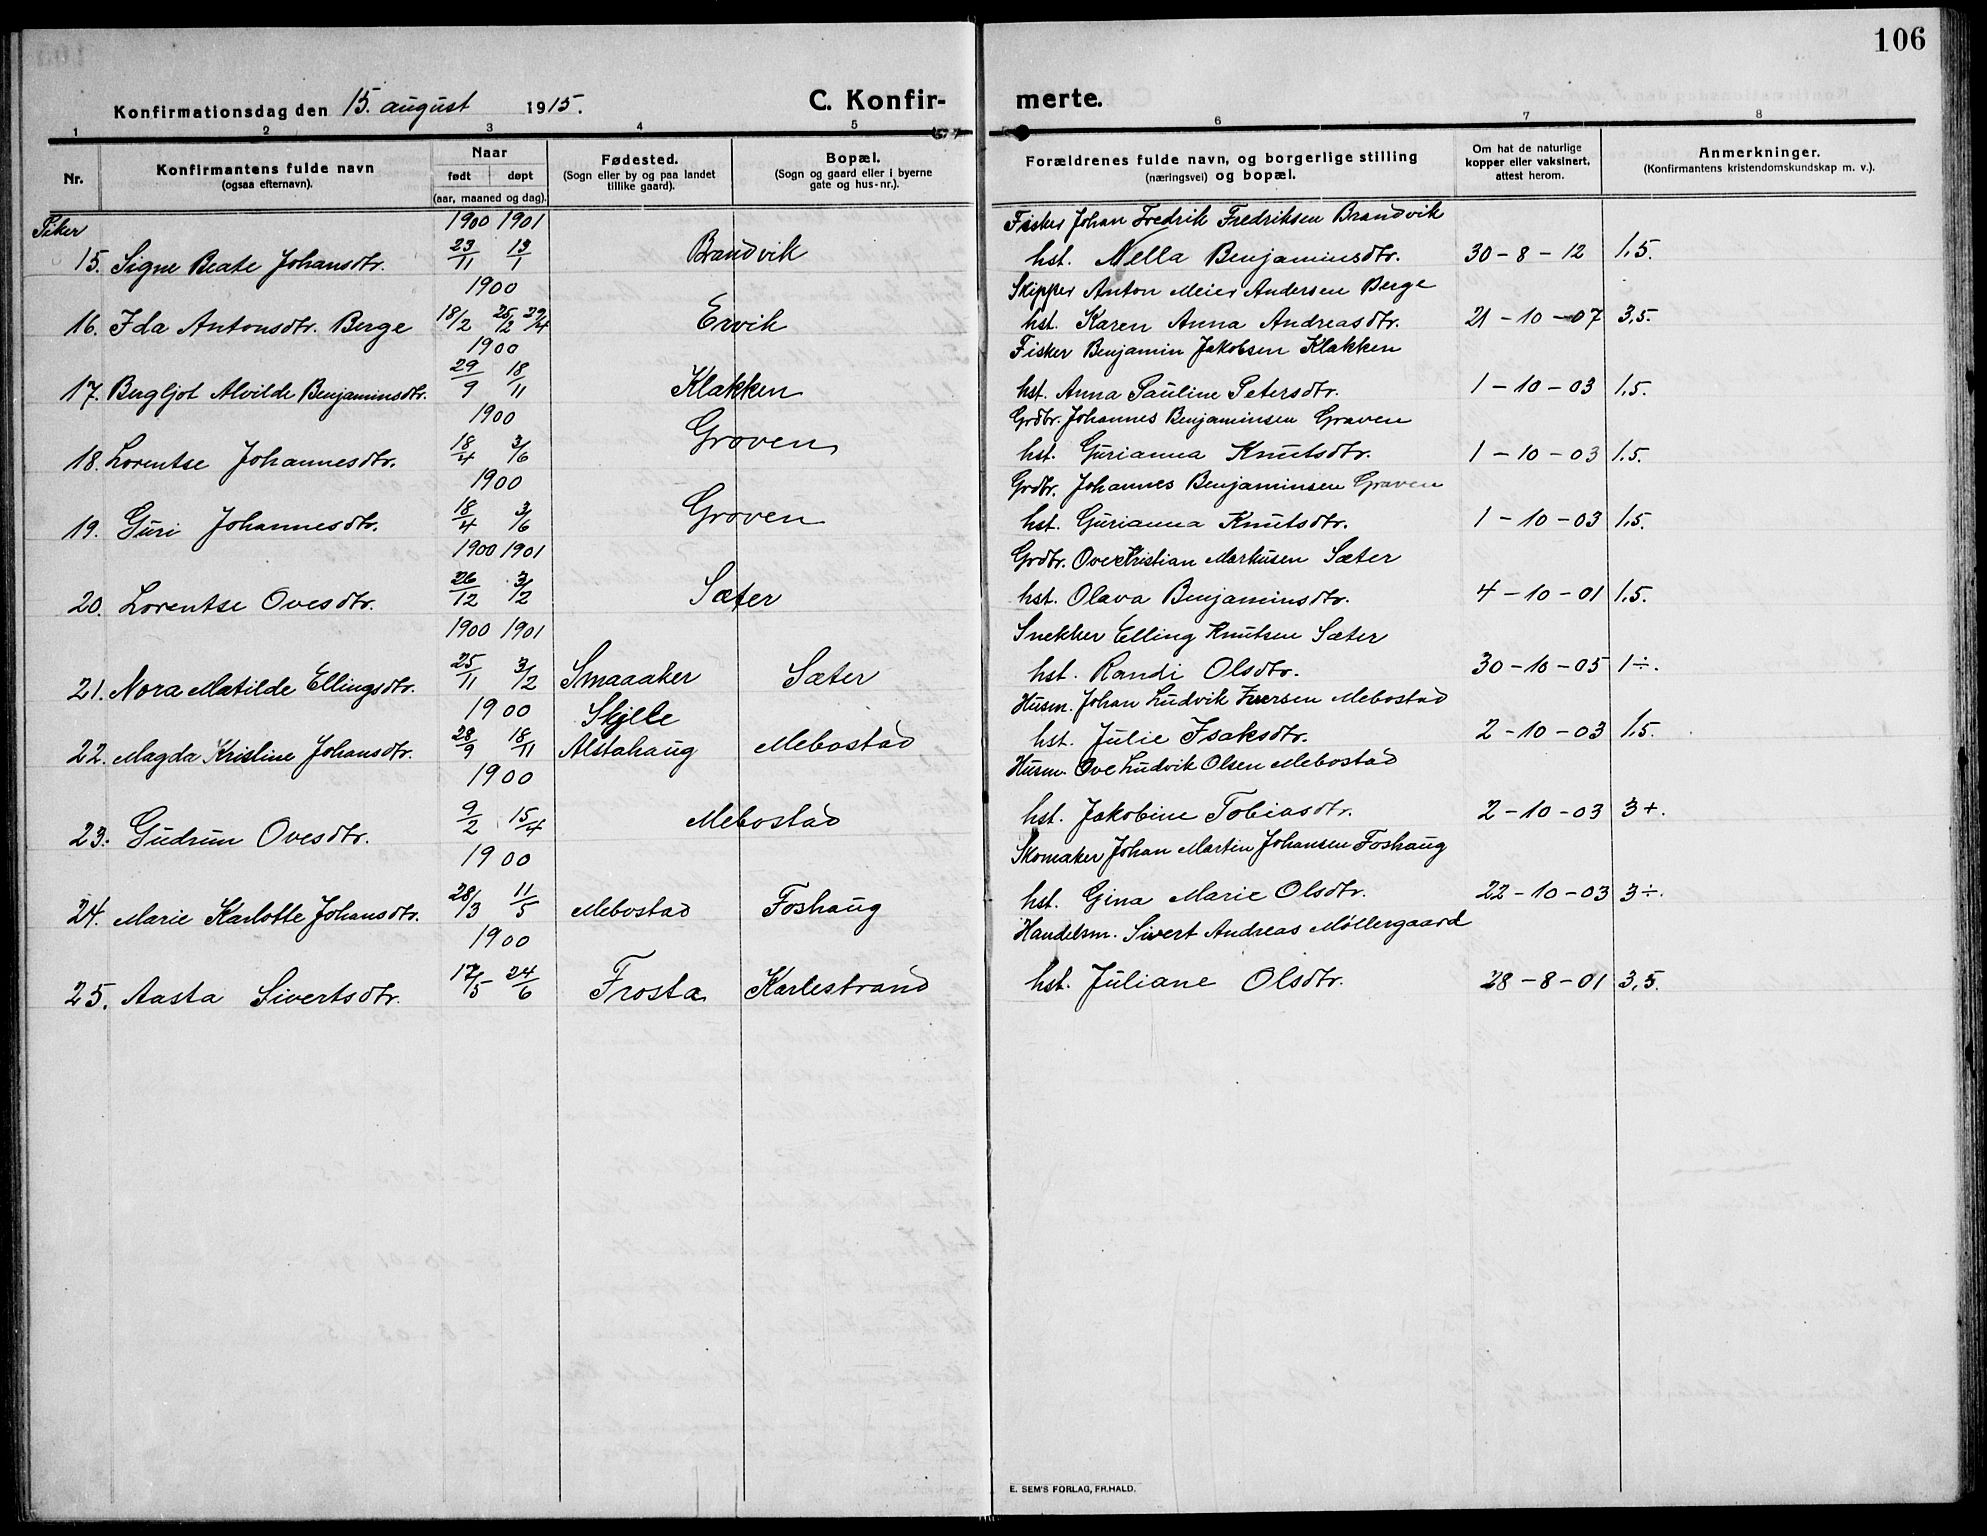 106
Konfirmationsdag den 15. august 1915.
C. Konfir-
merte.
1 2 3 4 5 6 7 8
Nr.
Konfirmantens fulde navn
(ogsaa efternavn).
Naar
født døpt
(aar, maaned og dag).
Fødested.
(Sogn eller by og paa landet
tillike gaard).
Bopæl.
(Sogn og gaard eller i byerne
gate og hus-nr.).
Forældrenes fulde navn, og borgerlige stilling
(næringsvei) og bopæl.
Om hat de naturlige
kopper eller vaksinert,
attest herom.
Anmerkninger.
(Konfirmantens kristendomskundskap m. v.).
Piker
1900 1901 Fisker Johan Fredrik Fredriksen Brandvik
15. Signe Beate Johansdtr. 23/11 13/1 Brandvik hst. Nella Benjaminsdtr. 30-8-12 1,5.
1900 Skipper Anton Meier Andersen Berge
16. Ida Antonsdtr. Berge 18/2 25/12 29/4 Ervik hst. Karen Anna Andreasdtr. 21-10-07 3,5.
1900 Fisker Benjamin Jakobsen Klakken
17. Bergljot Alvilde Benjaminsdtr. 29/9 18/11 Klakken hst. Anna Pauline Petersdtr. 1-10-03 1,5.
1900 Grdbr. Johannes Benjaminsen Graven
18. Lorentse Johannesdtr. 18/4 3/6 Groven hst. Gurianna Knutsdtr. 1-10-03 1.5.
1900 Grdbr. Johannes Benjaminsen Graven
19. Guri Johannesdtr. 18/4 3/6 Groven hst. Gurianna Knutsdtr. 1-10-03 1,5.
1900 1901 Grdbr. Ove Kristian Markusen Sæter
20. Lorentse Ovesdtr. 26/12 3/2 Sæter hst. Olava Benjaminsdtr. 4-10-01 1,5.
1900 1901 Snekker Elling Knutsen Sæter
21. Nora Matilde Ellingsdtr. 25/11 3/2 Smaaaker Sæter hst. Randi Olsdtr. 30-10-05 1÷.
1900 Skjelle Husm. Johan Ludvik Iversen Mebostad
22. Magda Kristine Johansdtr. 28/9 18/11 Alstahaug Mebostad hst. Julie Isaksdtr. 2-10-03 1,5.
1900 Husm. Ove Ludvik Olsen Mebostad
23. Gudrun Ovesdtr. 9/2 15/4 Mebostad hst. Jakobine Tobiasdtr. 2-10-03 3+.
1900 Skomaker Johan Martin Johansen Foshaug
24. Marie Karlotte Johansdtr. 28/3 11/5 Mebostad Foshaug hst. Gina Marie Olsdtr. 22-10-03 3÷.
1900 Handelsm. Sivert Andreas Møllergaard
25. Aasta Sivertsdtr. 17/5 24/6 Frosta Karlestrand hst. Juliane Olsdtr. 28-8-01 3,5.
E. SEM'S FORLAG, FR.HALD.